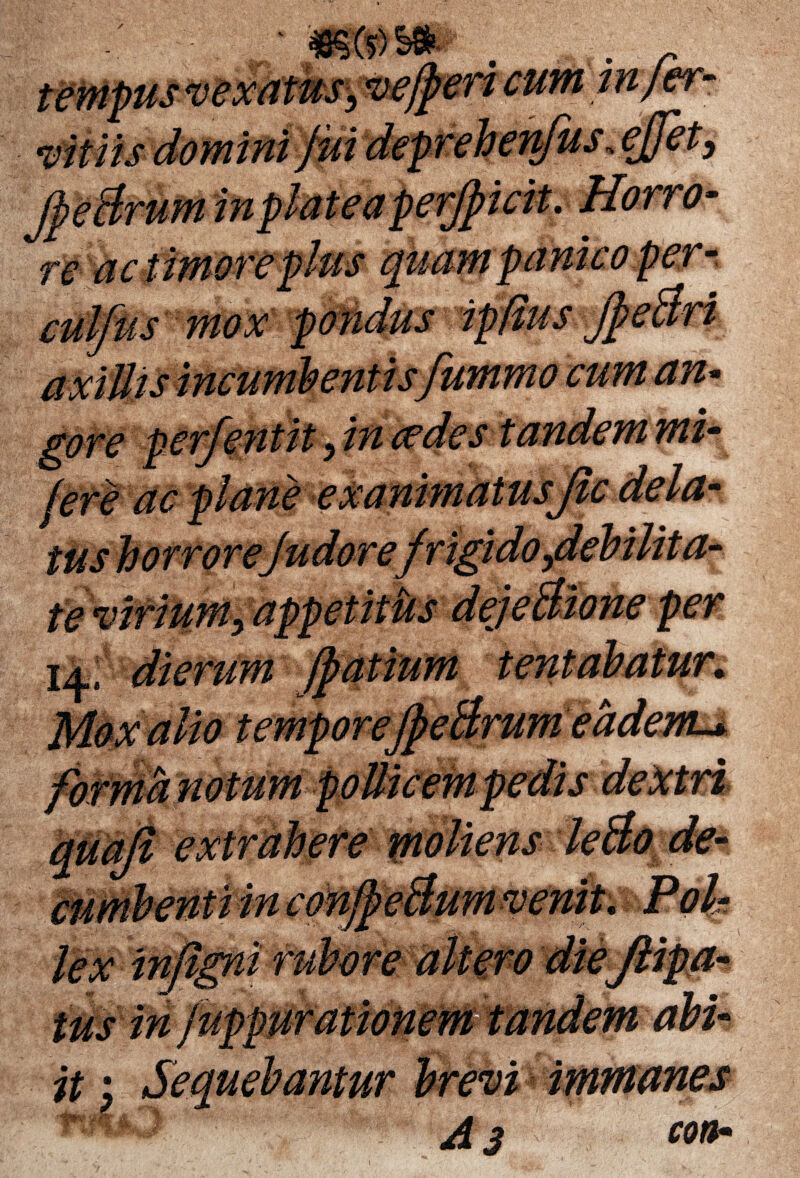 (5)
tempus vexatus, veſperi cum in ſer-
vitiis domini ſui deprehenſus. eſſet,
ſpectrum in platea perſpicit. Horro-
re ac timore plus quam panico per-
culſus mox pondus ipſius ſpectri
axillis incumbentis ſummo cum an-
gore perſentit, in ædes tandem mi-
ſerè ac planè exanimatus ſic dela-
tus horrore ſudore frigido, debilita-
te virium, appetitûs dejectione per
14. dierum ſpatium tentabatur.
Mox alio tempore ſpectrum eâdem
formâ notum pollicem pedis dextri
quaſi extrahere moliens lecto de-
cumbenti in conſpectum venit. Pol-
lex inſigni rubore altero die ſtipa-
tus in ſuppurationem tandem abi-
it; Sequebantur brevi immanes
A 3 con-